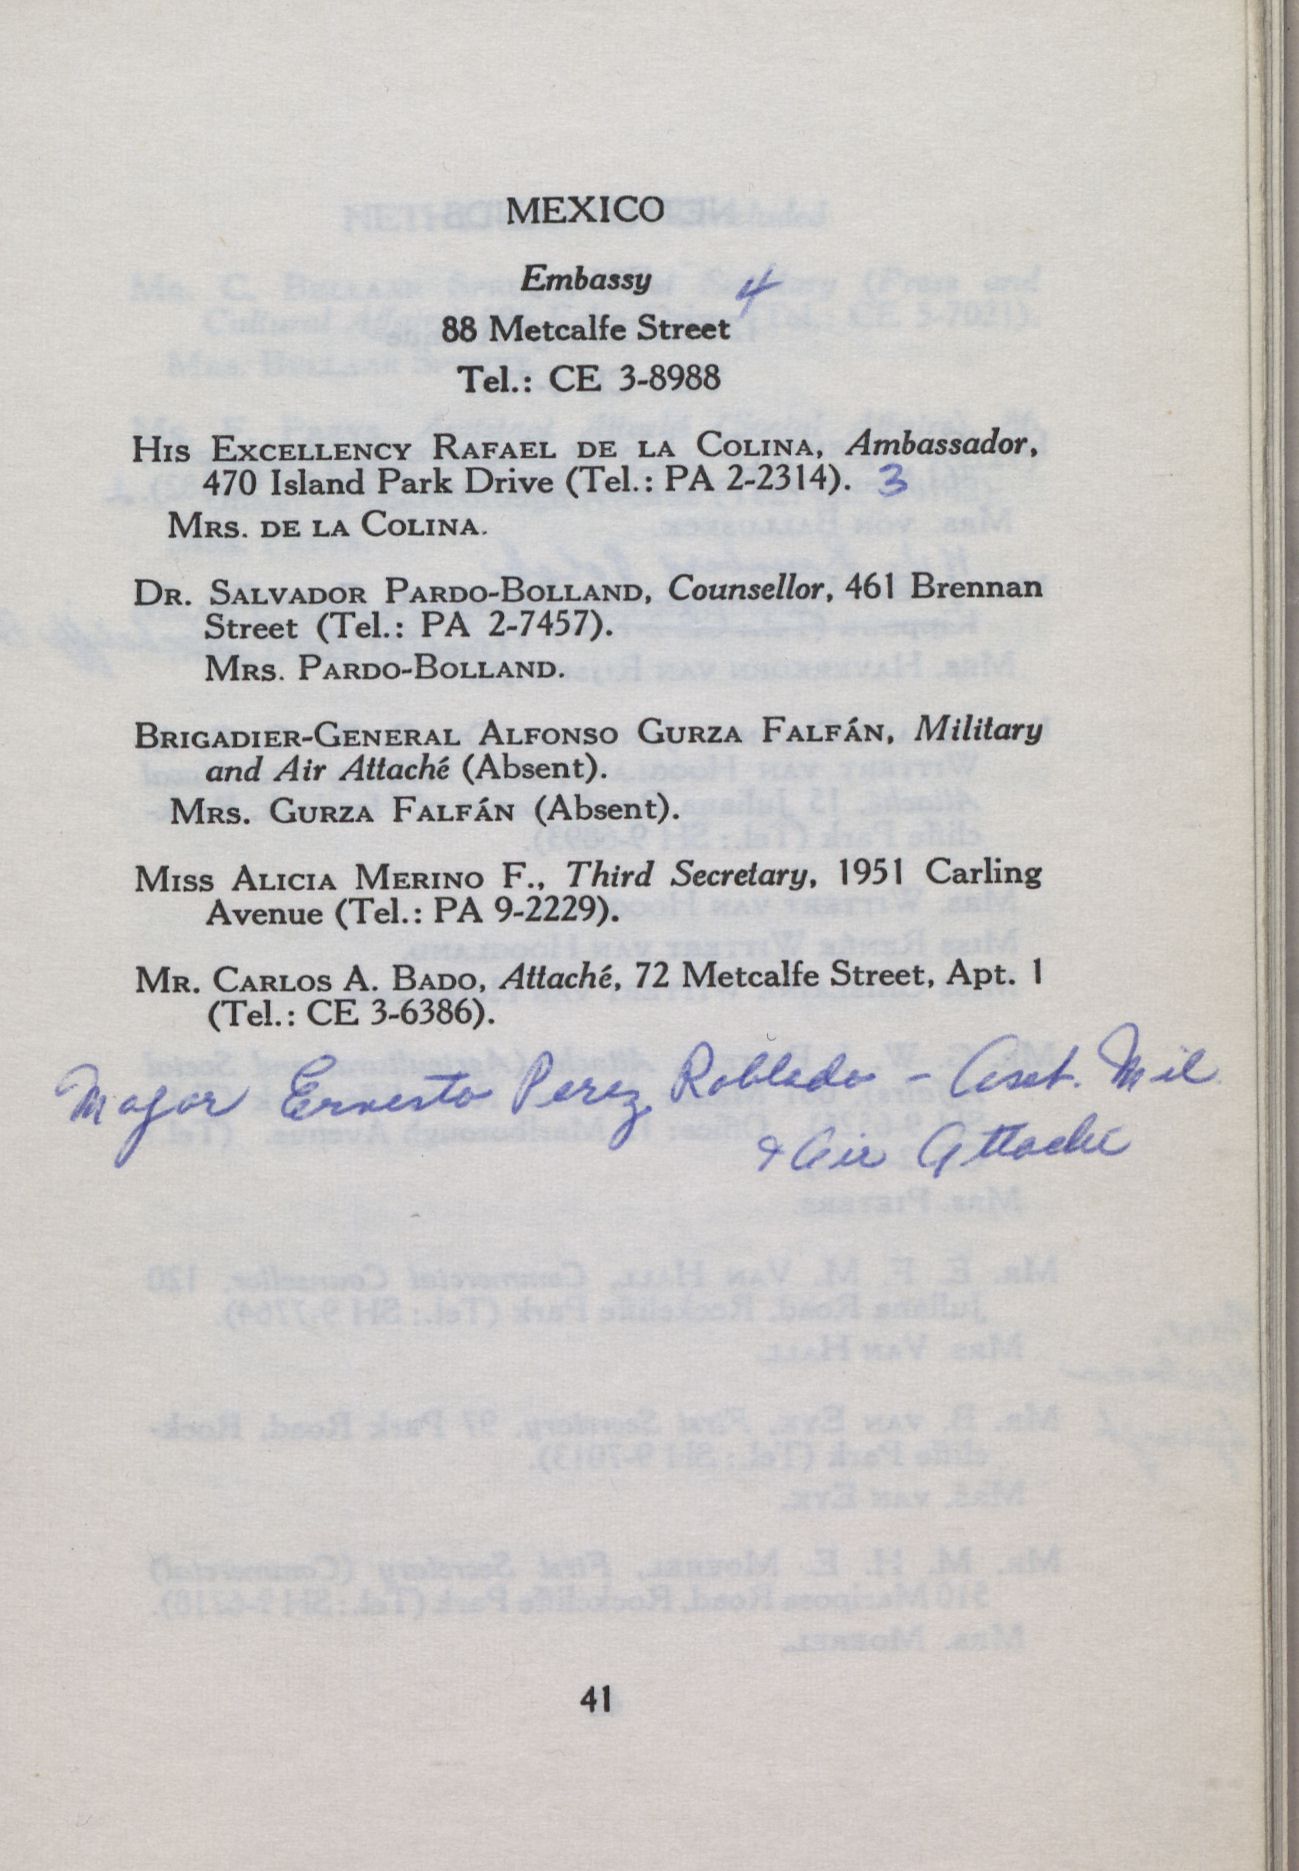 MEXICO
Embassy
4
88 Metcalfe Street
Tel.: CE 3-8988
HIS EXCELLENCY RAFAEL DE LA COLINA, Ambassador,
470 Island Park Drive (Tel.: PA 2-2314). 3
MRS. DE LA COLINA.
DR. SALVADOR PARDO-BOLLAND, Counsellor, 461 Brennan
Street (Tel.: PA 2-7457).
MRS. PARDO-BOLLAND.
BRIGADIER-GENERAL ALFONSO GURZA FALFÁN, Military
and Air Attaché (Absent).
MRS. GURZA FALFÁN (Absent).
MISS ALICIA MERINO F., Third Secretary, 1951 Carling
Avenue (Tel.: PA 9-2229).
MR. CARLOS A. BADO, Attaché, 72 Metcalfe Street, Apt. 1
(Tel.: CE 3-6386).
Major Ernesto Perez Robledo – Asst. Mil.
& Air Attaché
41